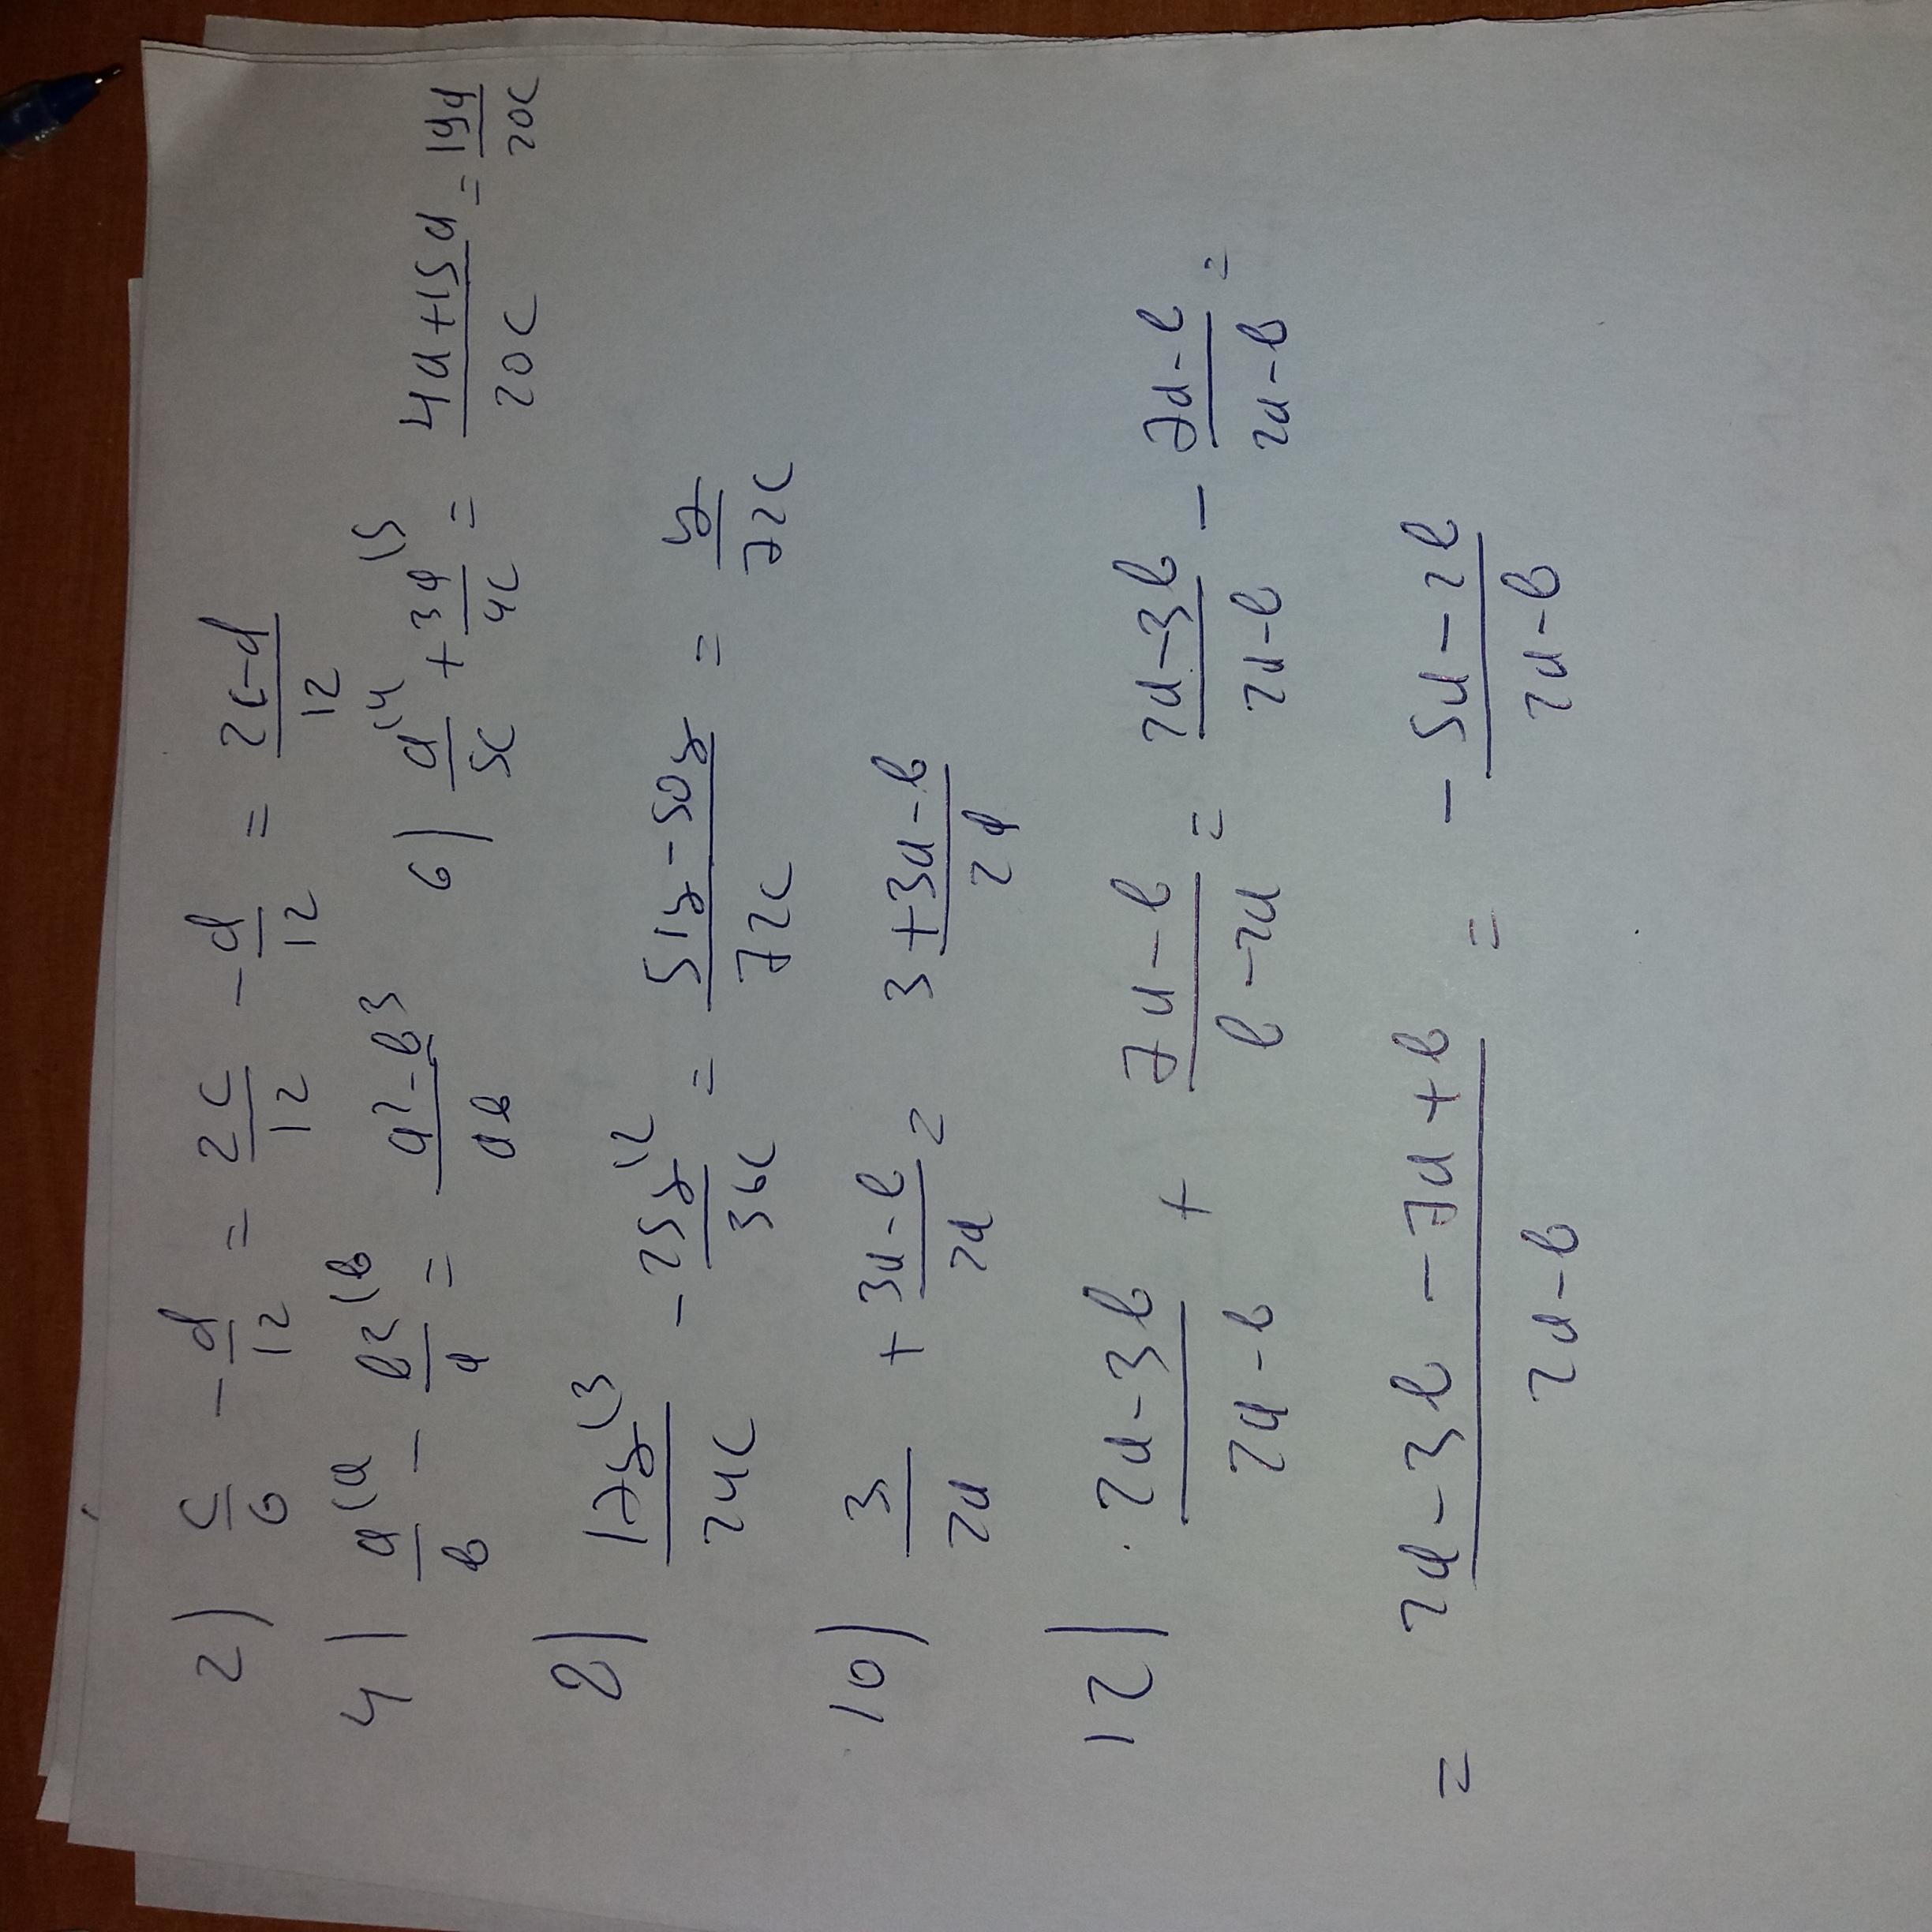 2) c/6 - d/12 = 2c/12 - d/12 = 2c-d/12
4) a(a/b - b2(b/a = a2-b3/ab 6) a(4/5c + 3a(5/4c = 4a+15a/20c = 19a/20c
8) 17y(3/24c - 25y(2/36c = 51y-50y/72c = y/72c
10) 3/2a + 3a-b/2a = 3+3a-b/2a
12) 2a-3b/2a-b + 7a-b/b-2a = 2a-3b/2a-b - 7a-b/2a-b =
= 2a-3b-7a+b/2a-b = -5a-2b/2a-b